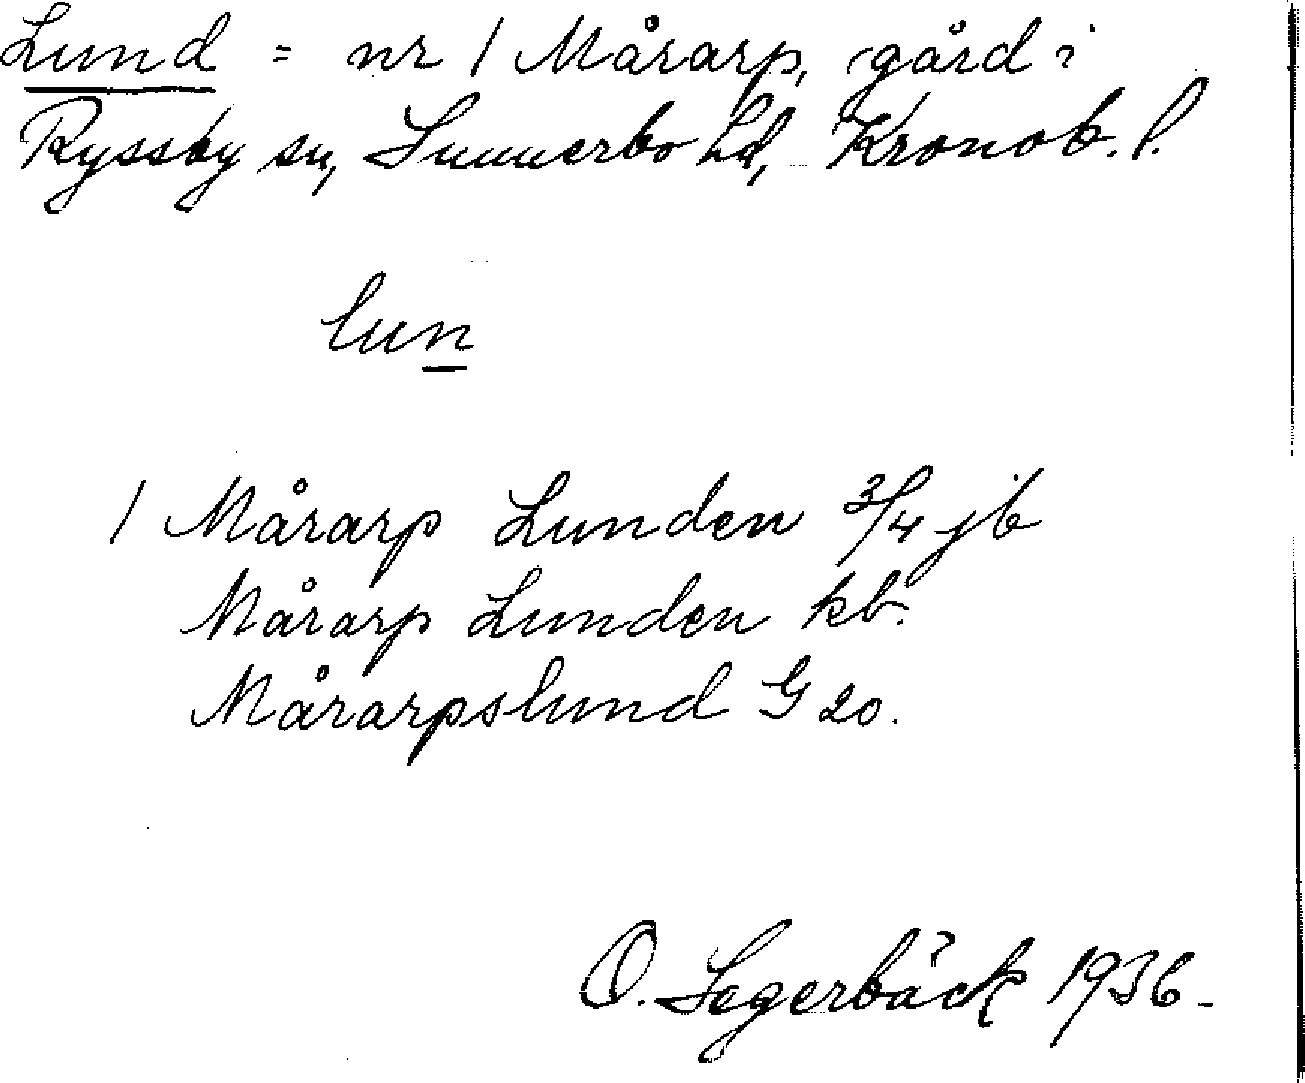 Lund = nr 1 Mårarp, gård i
Ryssby sn, Sunnerbo hd, Kronob. l.
lun
1 Mårarp Lunden 3/4 jb
Mårarp Lunden kb.
Mårarpslund G 20.
O. Segerbäck 1936.